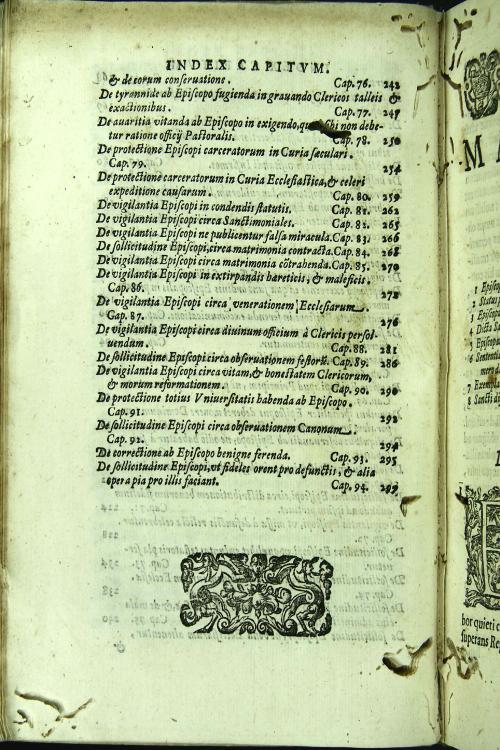 INDEX CAPITVM.
& de eorum conseruatione. Cap. 76. 242
De tyrannide ab Episcopo fugienda in grauando Clericos talleis &
exactionibus. Cap. 77. 247
De auaritia vitanda ab Episcopo in exigendo, sibi non debe-
tur ratione officij Pastoralis. Cap. 78. 250
De protectione Episcopi carceratorum in Curia sæculari.
Cap. 79. 254
De protectione carceratorum in Curia Ecclesiastica, & celeri
expeditione causarum. Cap. 80. 259
De vigilantia Episcopi in condendis statutis. Cap. 81. 262
De vigilantia Episcopi circa Sanctimoniales. Cap. 82. 265
De vigilantia Episcopi ne publicentur falsa miracula. Cap. 83. 266
De sollicitudine Episcopi, circa matrimonia contracta. Cap. 84. 268
De vigilantia Episcopi circa matrimonia cōtrahenda. Cap. 85. 270
De vigilantia Episcopi in extirpandis hæreticis, & maleficis.
Cap. 86. 272
De vigilantia Episcopi circa venerationem Ecclesiarum.
Cap. 87. 276
De vigilantia Episcopi circa diuinum officium à Clericis persol-
uendum. Cap. 88. 281
De sollicitudine Episcopi circa obseruationem festorū. Cap. 89. 286
De vigilantia Episcopi circa vitam, & honestatem Clericorum,
& morum reformationem. Cap. 90. 290
De protectione totius Vniuersitatis habenda ab Episcopo.
Cap. 91. 292
De sollicitudine Episcopi circa obseruationem Canonum.
Cap. 92. 294
De correctione ab Episcopo benigne ferenda. Cap. 93. 295
De sollicitudine Episcopi, vt fideles orent pro defunctis, & alia
opera pia pro illis faciant. Cap. 94. 299
M
1 Episcop
2 Status
3 Episcopa
4 Dicta Sa
5 Episcopus
6 Sententia
mero d
7 Exempla
8 Sancti di
bor quieti c
superans Re